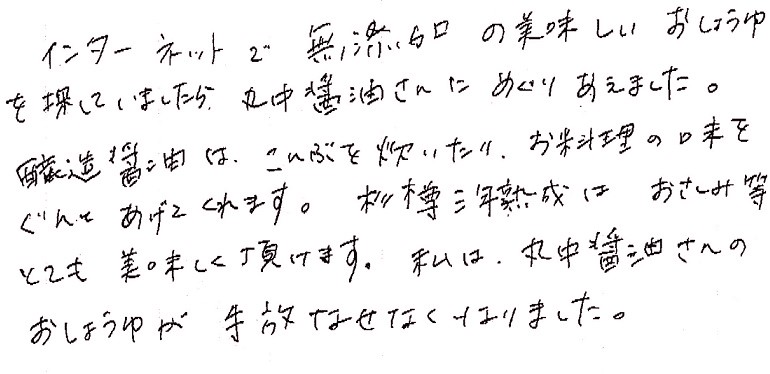 インターネットで 無添加の美味しい おしょうゆ
を探していましたら 丸中醤油さんに めぐりあえました。
醸造醤油は、こんぶを炊いたり、お料理の味を
ぐんと あげてくれます。 杉樽三年熟成は おさしみ等
とても 美味しく頂けます。 私は、丸中醤油さんの
おしょうゆが 手放なせなくなりました。